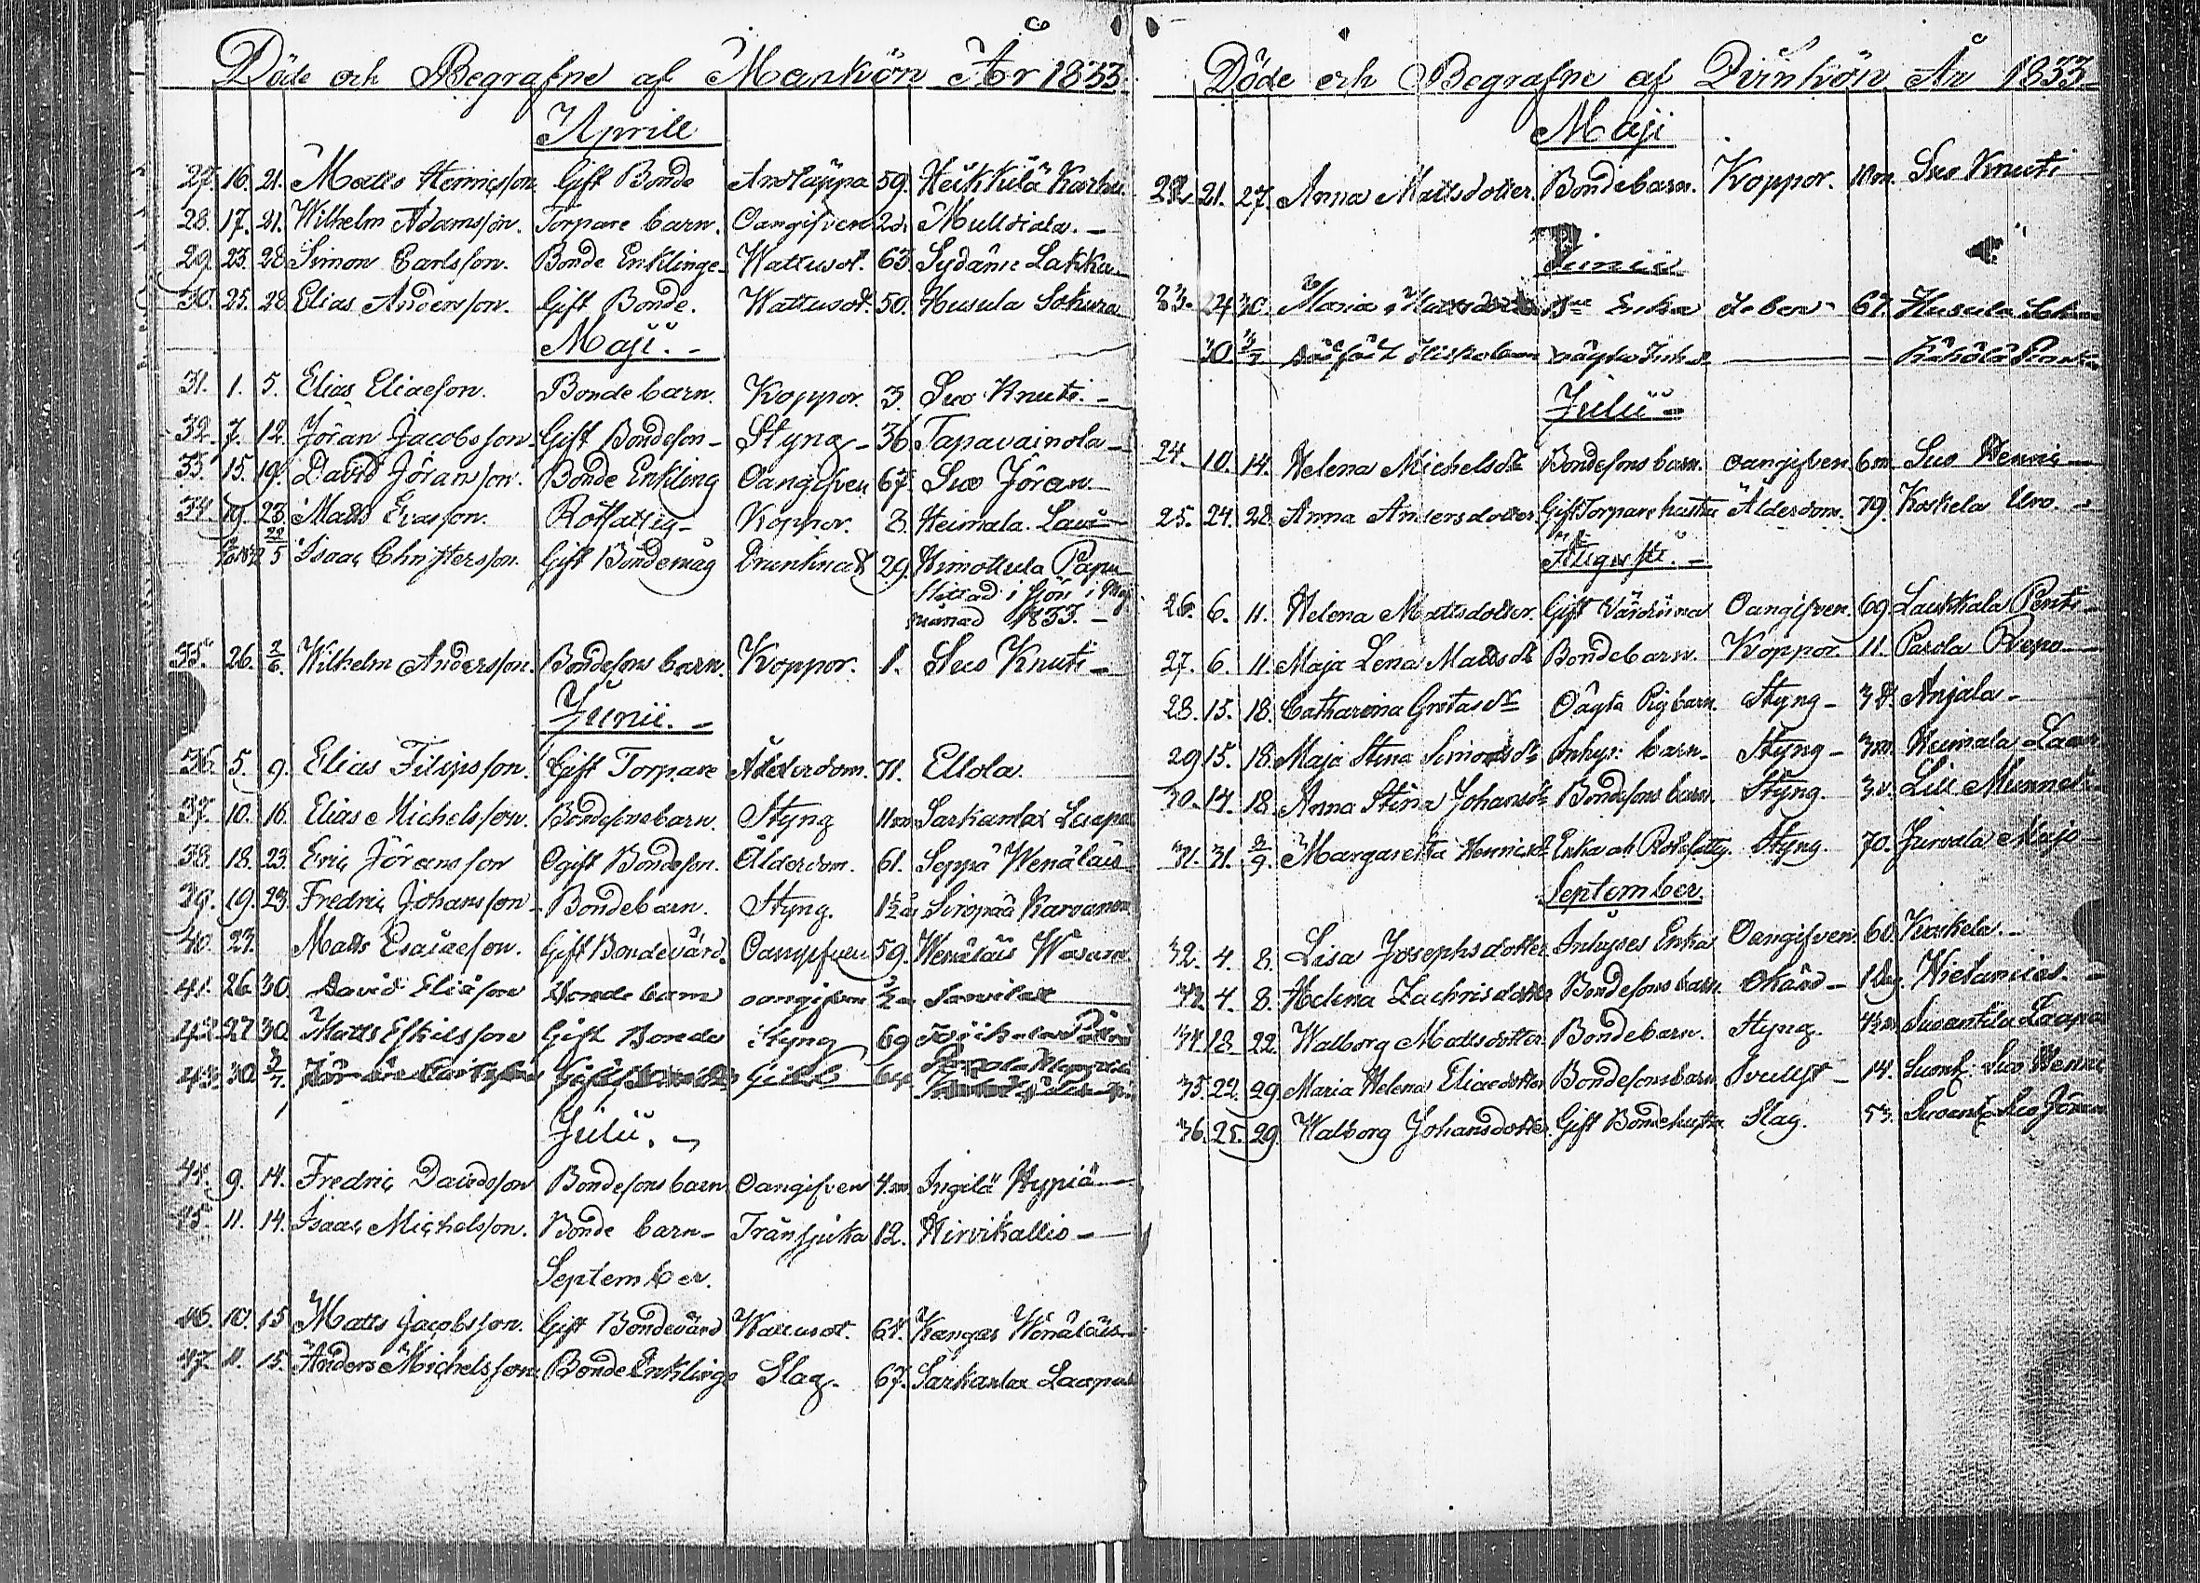 Döde och Begrafne af Mankön År 1833
Aprill
27. 16. 21. Matts Henricsson Gift Bonde Andtäppa 59. Heikkilä Karhu
28. 17. 21. Wilhelm Adamsson. Torpare barn. Oangifven Mulldiala.
29. 23. 28. Simon Carlsson. Bonde Enklinge Wattusot. 63. Sydänn Lakka
30. 25. 28. Elias Andersson. Gift Bonde. Wattusot. 50. Husula Sohura
Maji.
31. 1. 5. Elias Eliaeson. Bonde barn. Koppor. 3. Suo Knuti.
32. 7. 12. Jöran Jacobsson Gift Bondeson Styng 36. Tapavainola
33. 15. 19. David Jöransson. Bonde Enkling Oangifven 67. Suo Jöran
34. 19. 23. Matts Evasson. Rotfattig Koppor. 8. Heimala
Isaac Christersson. Gift Bondemåg Drunknad 29. Himottula
hittad i sjön i Maji
månad 1833.
35. 26. 2/6. Wilhelm Andersson. Bondesons barn. Koppor. 1. Suo Knuti
Junii.
36. 5. 9. Elias Filipsson. Gift Torpare Ålderdom. 71. Ellola
37. 10. 16. Elias Michelsson. Bondesons barn. Styng 11 m Sarkamlax
38. 18. 23. Eric Jöransson Ogift Bondeson. Ålderdom. 61. Seppä Wenäläis
39. 19. 23. Fredric Johansson Bondebarn. Styng. 1½ år Siropää Karvonen
40. 23. Matts Esaiaeson. Gift Bondevärd. Oangifven 59. Wenäläis
41. 26. 30. David Eliäson Bonde barn oangifven
42. 27 30. Matts Eskilsson Gift Bonde Styng 69
43. 30 2/7.
Julii.
44. 9. 14. Fredric Davidsson Bondesons barn Oangifven 4 m Ingilä Hypiä
45. 11. 14. Isaac Michelsson. Bonde barn Trånsjuka 12. Hirvikallio
September.
46. 10. 15 Matts Jacobsson. Gift Bondevärd Wattusot. 61. Kangas Wenäläis
47. 11. 15. Anders Michelsson. Bonde Enklinge Slag. 67. Sarkamlax
Döde och Begrafne af Qvinkön År 1833
Maji
22. 21. 27. Anna Mattsdotter. Bondebarn. Koppor. 10 m. Suo Knuti
Junii
23. 24 30. Maria Enka 67. Husula
30 2/7
Julii
24. 10. 14. Helena Michelsdr Bondesons barn. oangifven 6 m Suo Henric
25. 24. 28. Anna Andersdotter Gift Torpare hustru Ålderdom. 79. Koskela Uro.
Augusti.
26. 6. 11. Helena Mattsdotter. Gift Värdinna Oangifven. 69. Laukkala Penti
27. 6. 11. Maja Lena Mattsdr Bondebarn. Koppor. 11. Parola Repo
28. 15. 18. Catharina Gretasdr Oägta Pigbarn. Styng Anjala
29 15. 18. Maja Stina Simonsdr Inhys: barn. Styng 3 m. Heimala
30. 14. 18. Anna Stina Johansdr Bondesons barn. Styng. 3 v.
31. 31. 2/9. Margaretta Henricsdr Enka och Rotefattig. Styng. 70. Jurvala
September.
32. 4. 8. Lisa Josephsdotter Inhyses Enka Oangifven. 60. Koskela.
33. 4. 8. Helena Zachrisdotter Bondesons barn. Okänd 1 dag.
34. 18. 22. Walborg Mattsdotter. Bondebarn. Styng. Suoantila
35. 22. 29. Maria Helena Eliaedotter Bondesons barn 14. Suo Henric
36. 25. 29. Walborg Johansdotter. Gift Bondehustru Slag. 53. Suo Jöran